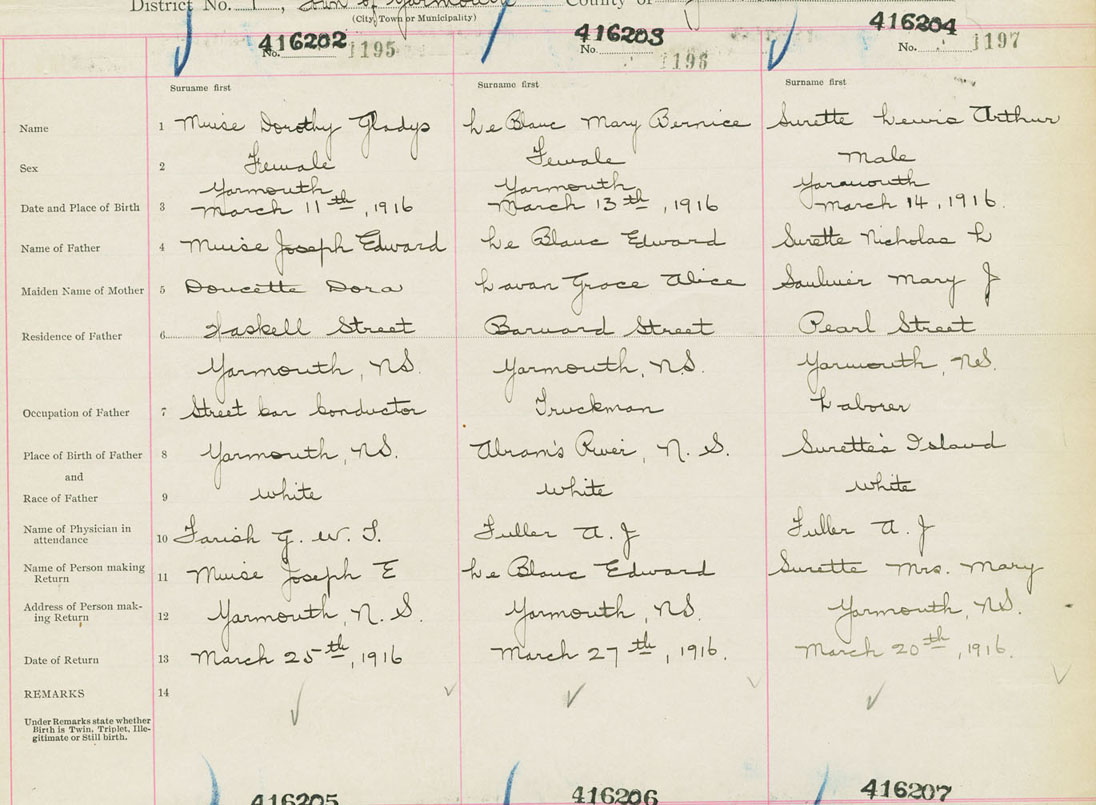 District No. 1, Town of Yarmouth County of
(City, Town or Municipality)
416202 416203 416204
No. 1195 No. 1196 No. 1197
Surname first Surname first Surname first
Name 1 Muise Dorothy Gladys Le Blanc Mary Bernice Surette Lewis Arthur
Sex 2 Female Female Male
Yarmouth Yarmouth Yarmouth
Date and Place of Birth 3 March 11th, 1916 March 13th, 1916 March 14, 1916.
Name of Father 4 Muise Joseph Edward Le Blanc Edward Surette Nicholas L
Maiden Name of Mother 5 Doucette Dora Lavan Grace Alice Saulnier Mary J
Residence of Father 6 Haskell Street Barnard Street Pearl Street
Yarmouth, NS. Yarmouth, N.S. Yarmouth, NS.
Occupation of Father 7 Street Car Conductor Truckman Laborer
Place of Birth of Father 8 Yarmouth, NS. Abram's River, N. S. Surette's Island
and
Race of Father 9 white white white
Name of Physician in
attendance 10 Farish G. W. T. Fuller A. J Fuller A. J
Name of Person making
Return 11 Muise Joseph E Le Blanc Edward Surette Mrs. Mary
Address of Person mak-
ing Return 12 Yarmouth, N. S. Yarmouth, NS. Yarmouth, NS.
Date of Return 13 March 25th, 1916 March 27th, 1916. March 20th, 1916.
REMARKS 14
Under Remarks state whether
Birth is Twin, Triplet, Ille-
gitimate or Still birth.
416205 416206 416207